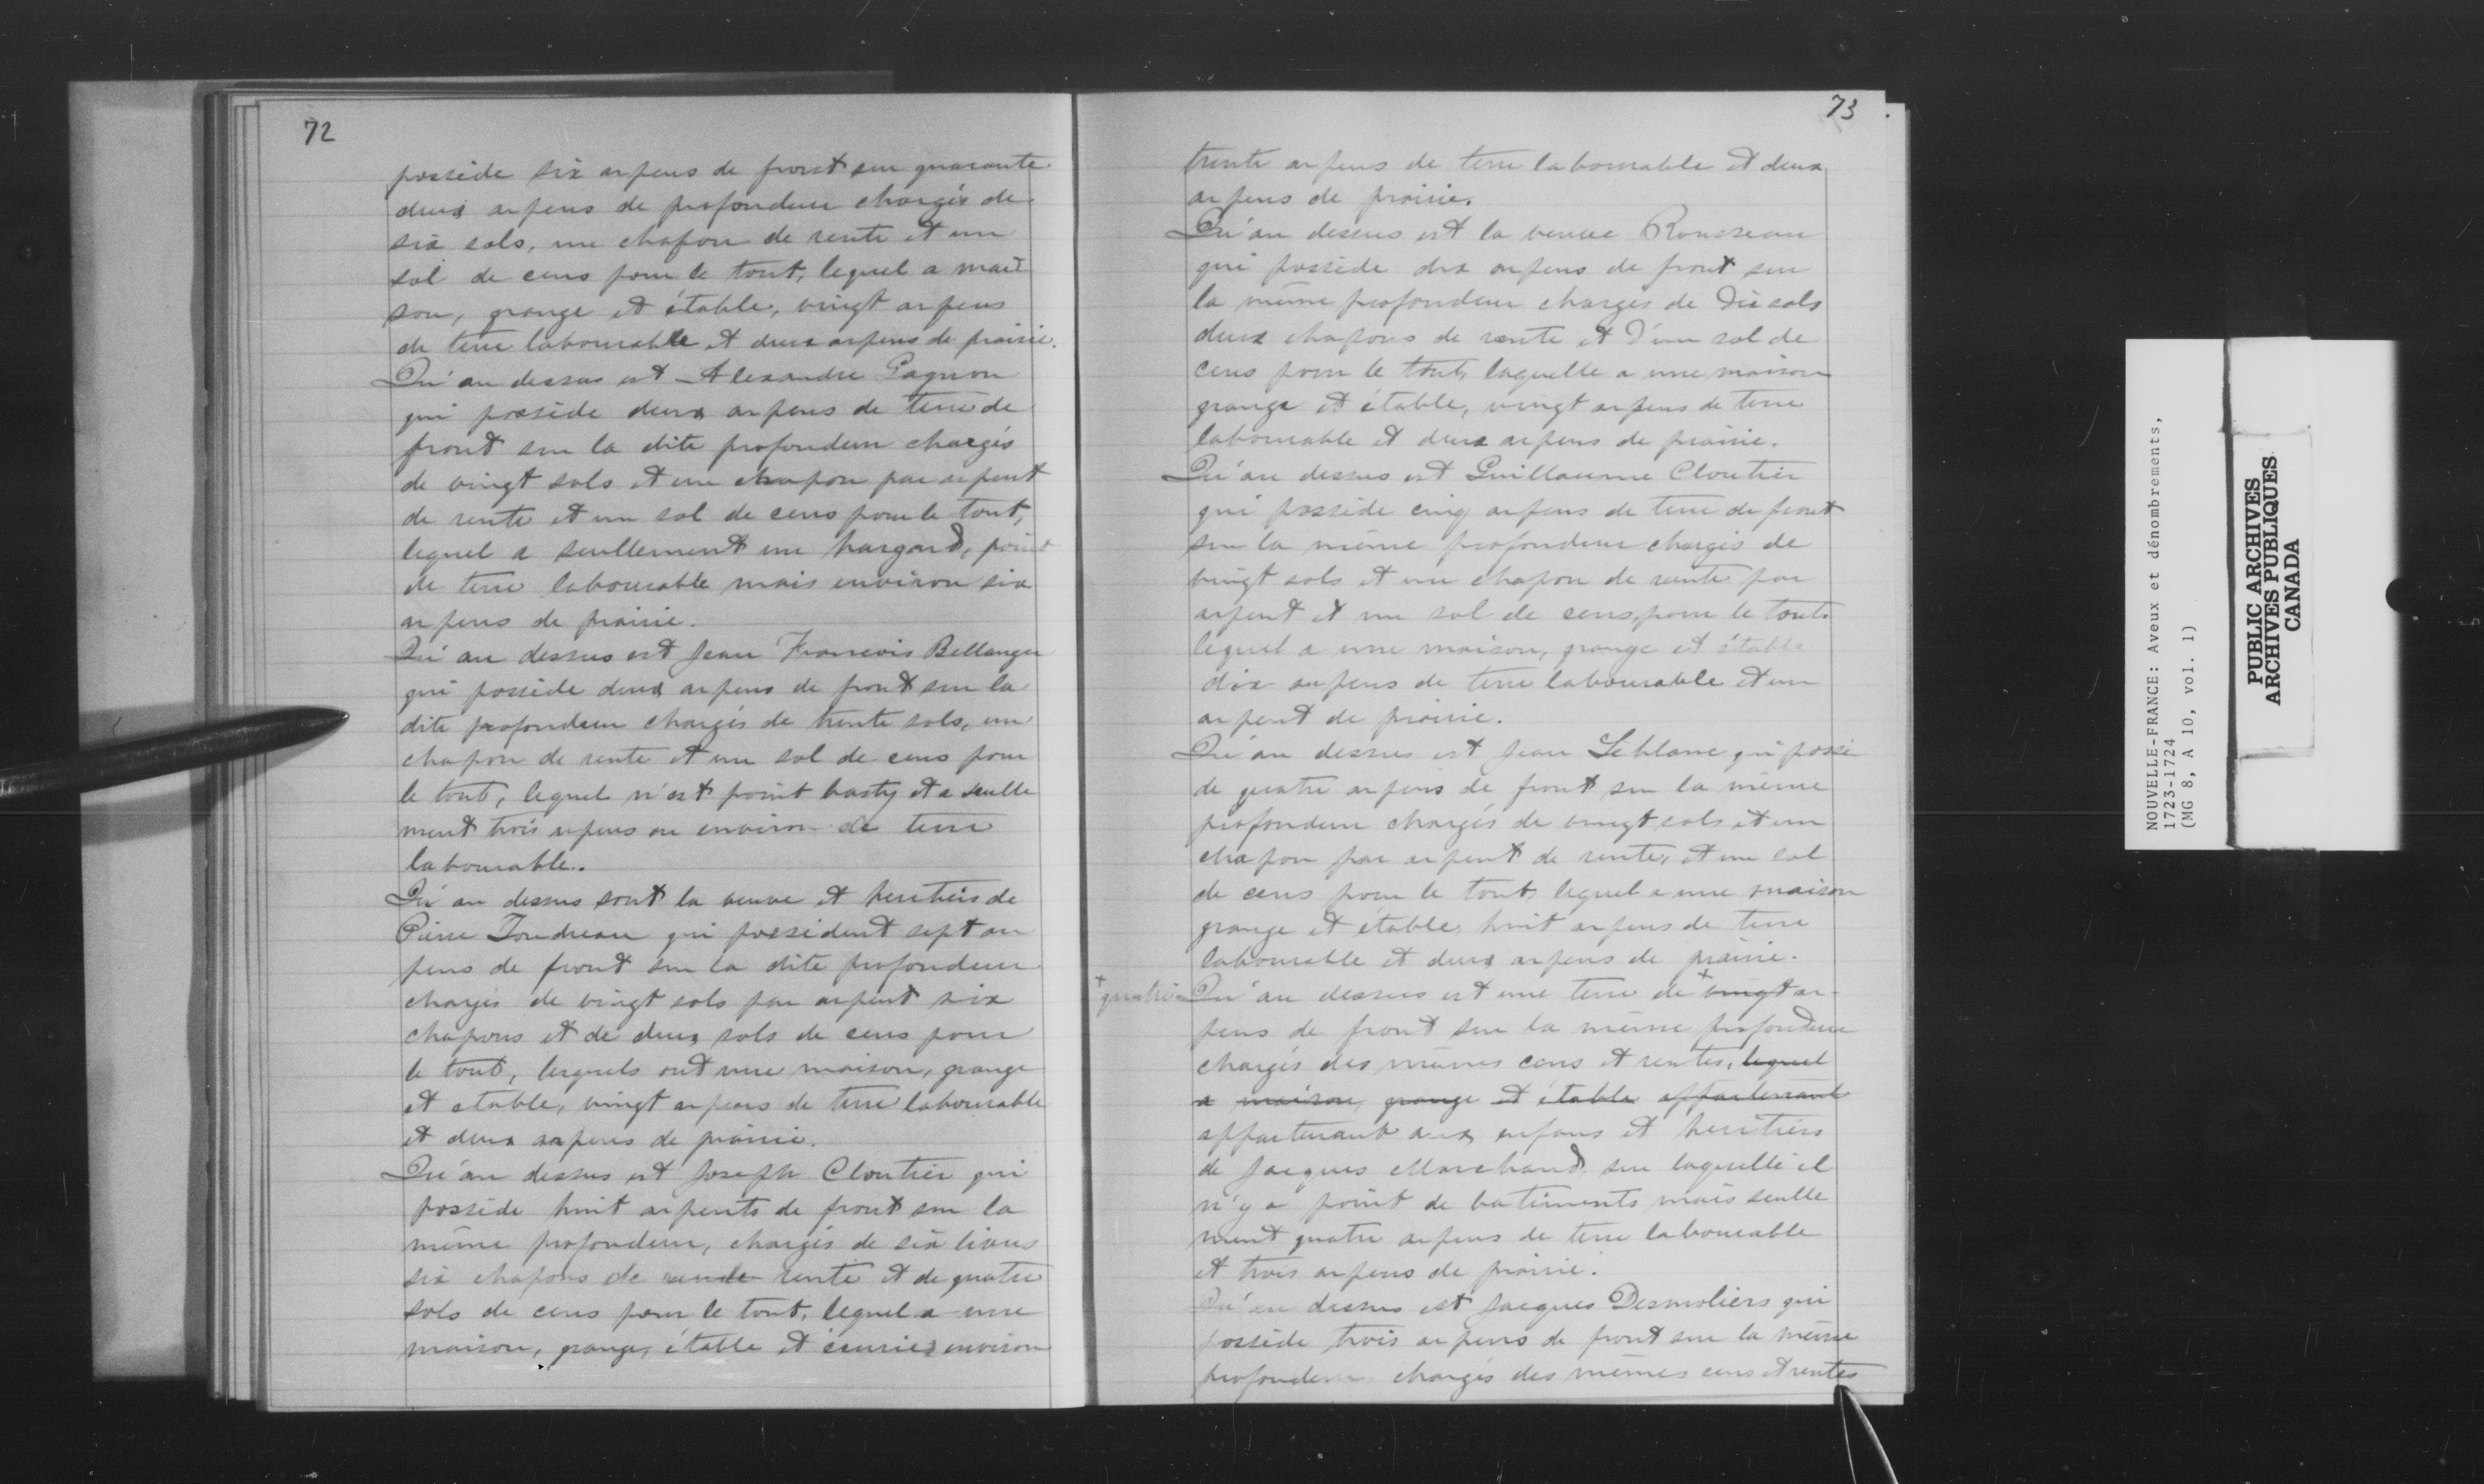 72
possède six arpens de front sur quarante
deux arpens de profondeur chargés de
six sols, un chapon de rente et un
sol de cens pour le tout, lequel a mai
son, grange et étable, vingt arpens
de terre labourable et deux arpens de prairie.
Qu'au dessus est Alexandre Gagnon
qui possède deux arpens de terre de
front sur la dite profondeur chargés
de vingt sols et un chapon par arpent
de rente et un sol de cens pour le tout,
lequel a seullement un hangard, point
de terre labourable mais environ six
arpens de prairie.
Qu'au dessus est Jean Francois Bellanger
qui possède deux arpens de front sur la
dite profondeur chargés de trente sols, un
chapon de rente et un sol de cens pour
le tout, lequel n'est point basty et a seulle
ment trois arpens ou environ de terre
labourable.
Qu'au dessus sont la veuve et heritiers de
Pierre Joudreau qui possèdent sept ar
pens de front sur la dite profondeur
chargés de vingt sols par arpent six
chapons et de deux sols de cens pour
le tout, lesquels ont une maison, grange
et etable, vingt arpens de terre labourable
et deux arpens de prairie.
Qu'au dessus est Joseph Cloutier qui
possède huit arpents de front sur la
même profondeur, chargés de six livres
six chapons de rende rente et de quatre
sols de cens pour le tout, lequel a une
maison, grange, étable et écuries environ
73
trente arpens de terre labourable et deux
arpens de prairie.
Qu'au dessus est la veuve Rousseau
qui possède dix arpens de front sur
la même profondeur chargés de dix sols
deux chapons de rente et d'un sol de
cens pour le tout, laquelle a une maison
grange et étable, vingt arpens de terre
labourable et deux arpens de prairie.
Qu'au dessus est Guillaume Cloutier
qui possède cinq arpens de terre de front
sur la même profondeur chargés de
vingt sols et un chapon de rente par
arpent et un sol de cens pour le tout
lequel a une maison, grange et étable
dix arpens de terre labourable et un
arpent de prairie.
Qu'au dessus est Jean Leblanc qui possè
de quatre arpens de front sur la même
profondeur chargés de vingt sols et un
chapon par arpent de rente, et un sol
de cens pour le tout, lequel a une maison
grange et étable, huit arpens de terre
labourable et deux arpens de prairie.
+ quatre Qu'au dessus est une terre de + vingt ar-
pens de front sur la même profondeur
chargés des mêmes cens et rentes, lequel
a maison, grange et étable appartenant
appartenant aux enfans et heritiers
de Jacques Marchand sur laquelle il
n'y a point de batiments mais seulle
ment quatre arpens de terre labourable
et trois arpens de prairie.
Qu'au dessus est Jacques Desmoliers qui
possède trois arpens de front sur la même
profondeur chargés des mêmes cens et rentes
NOUVELLE-FRANCE: Aveux et dénombrements,
1723-1724
(MG 8, A 10, vol. 1)
PUBLIC ARCHIVES
ARCHIVES PUBLIQUES
CANADA